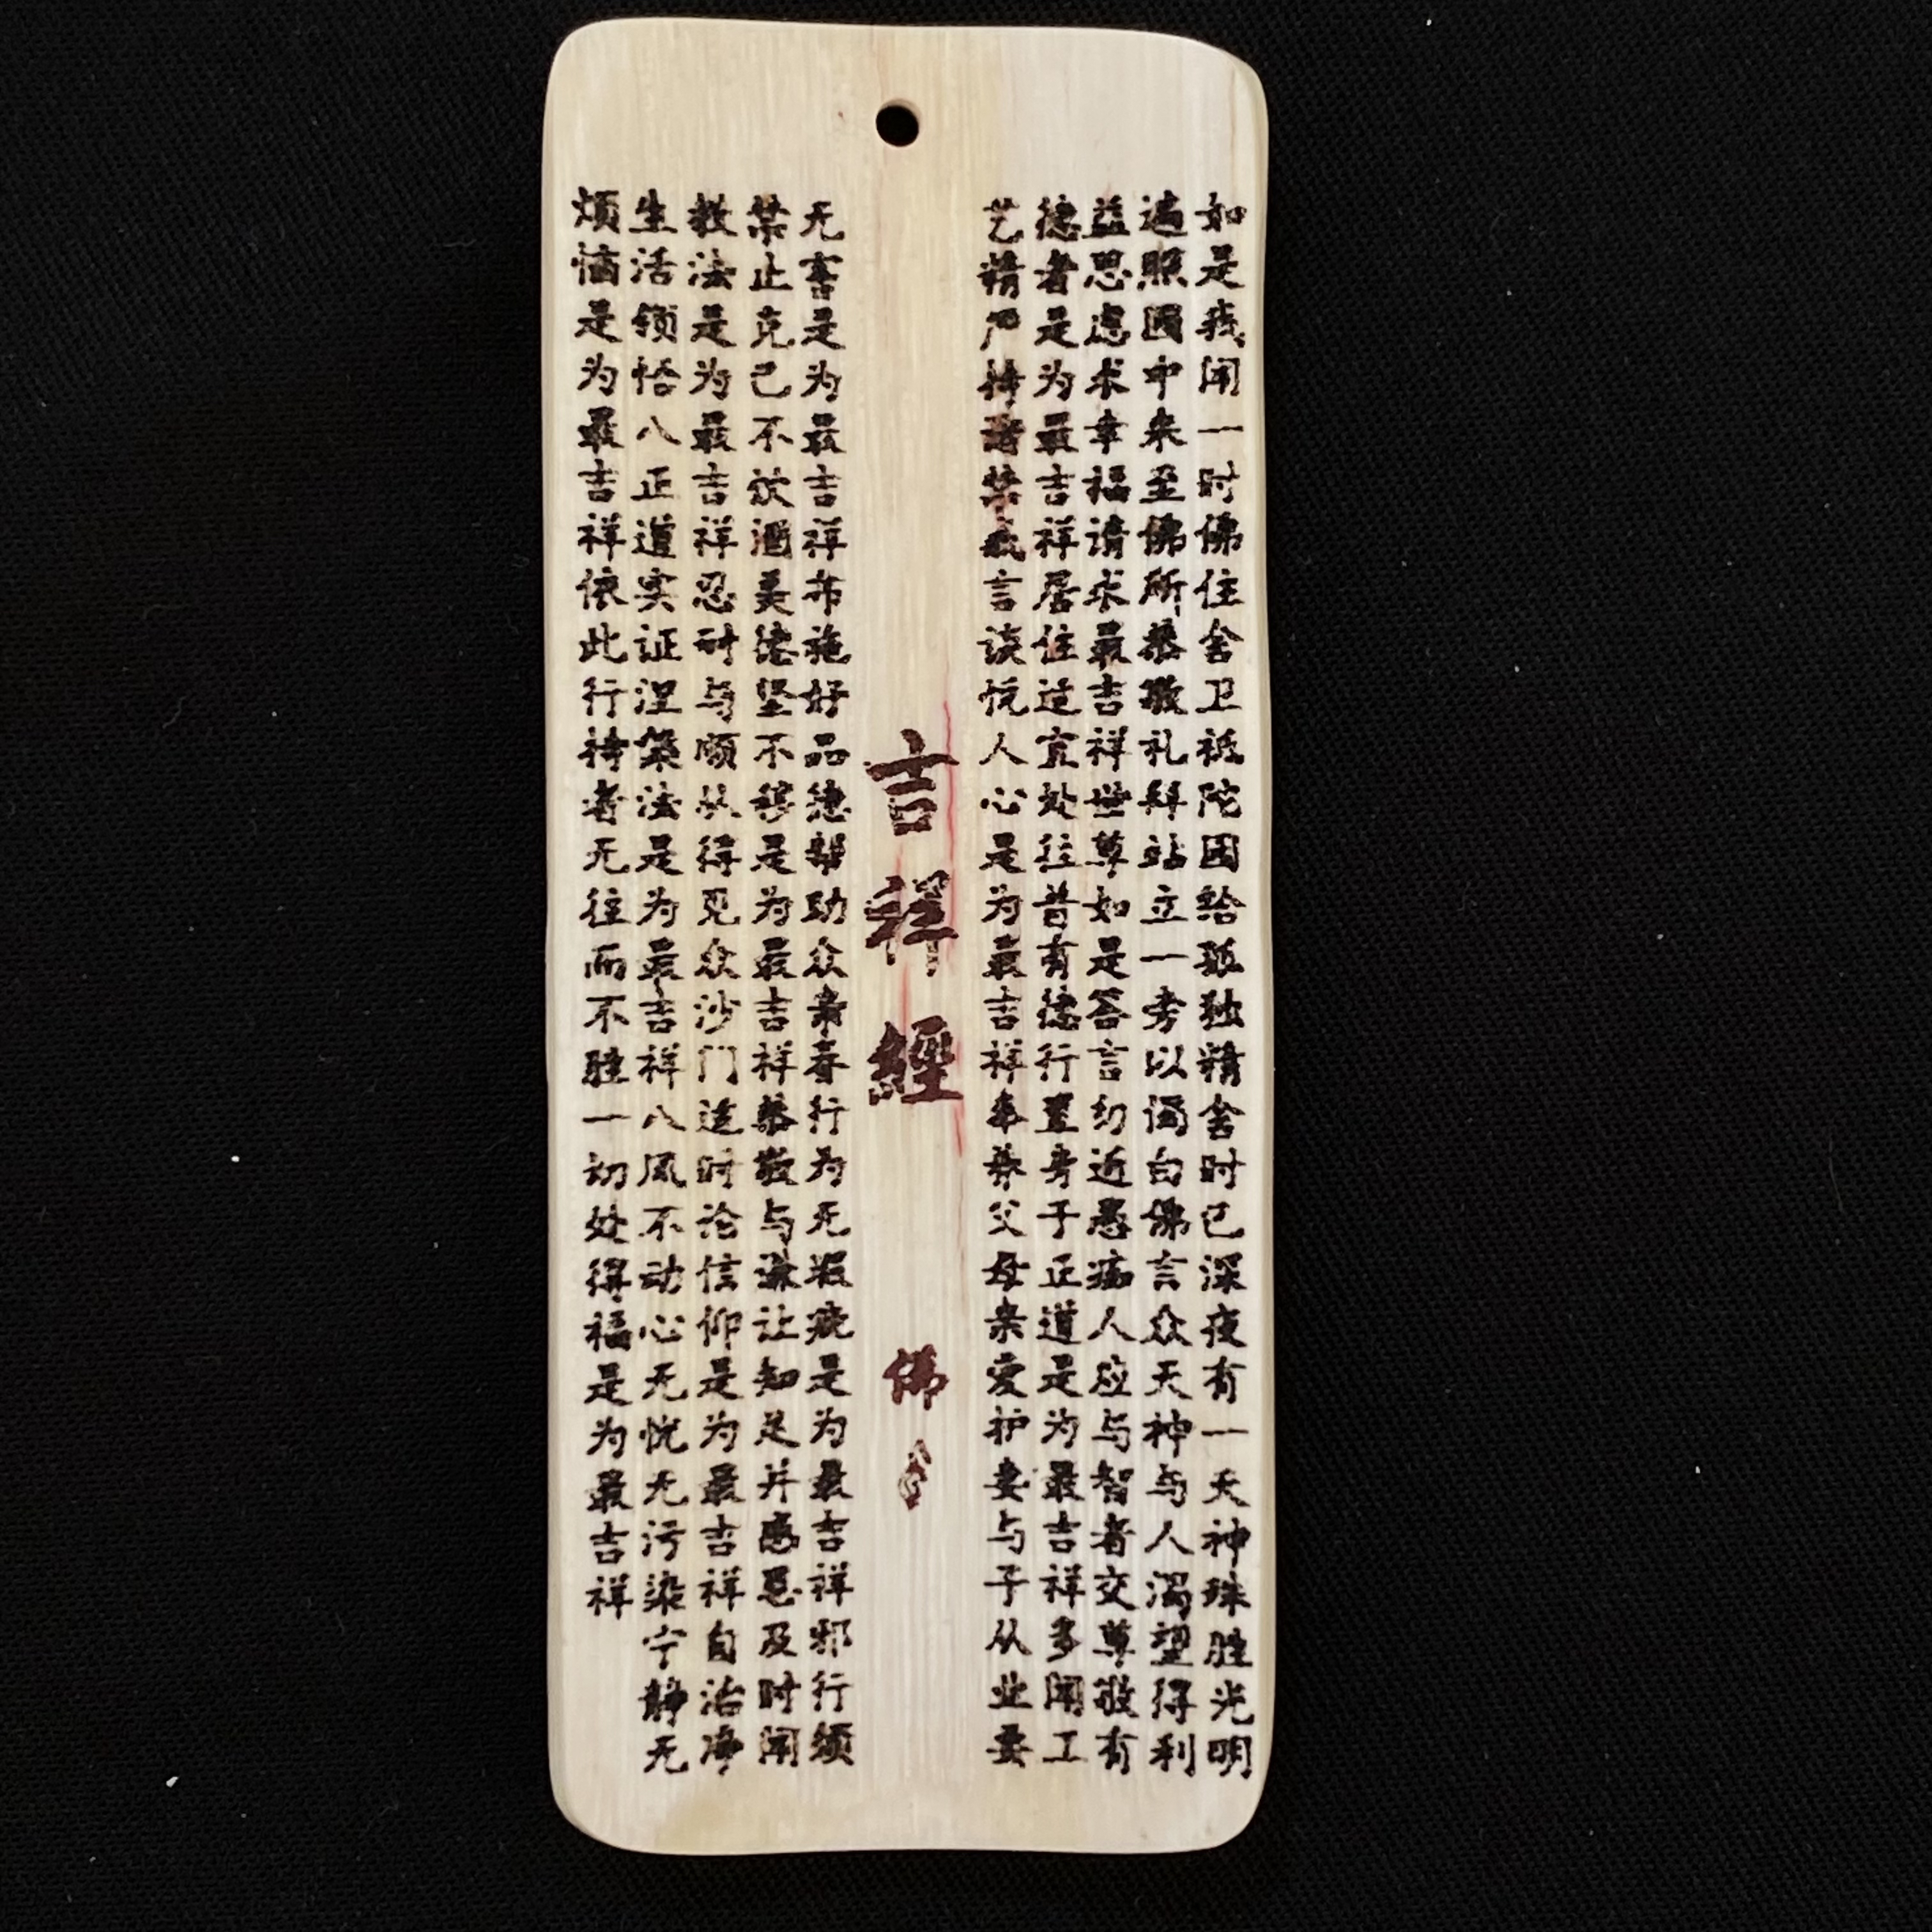 如是我闻一时佛住舍卫祗陀园给孤独精舍时已深夜有一天神殊胜光明
遍照园中来至佛所恭敬礼拜站立一旁以偈白佛言众天神与人渴望得利
益思虑求幸福请求最吉祥世尊如是答言勿近愚痴人应与智者交尊敬有
德者是为最吉祥居住适宜处往昔有德行置身于正道是为最吉祥多闻工
艺精严持诸禁戒言谈悦人心是为最吉祥奉养父母亲爱护妻与子从业要
吉祥經
佛
无害是为最吉祥布施好品德帮助众亲眷行为无瑕疵是为最吉祥邪行须
禁止克己不饮酒美德坚不移是为最吉祥恭敬与谦让知足并感恩及时闻
教法是为最吉祥忍耐与顺从得见众沙门适时论信仰是为最吉祥自治净
生活领悟八正道实证涅槃法是为最吉祥八风不动心无忧无污染宁静无
烦恼是为最吉祥依此行持者无往而不胜一切处得福是为最吉祥